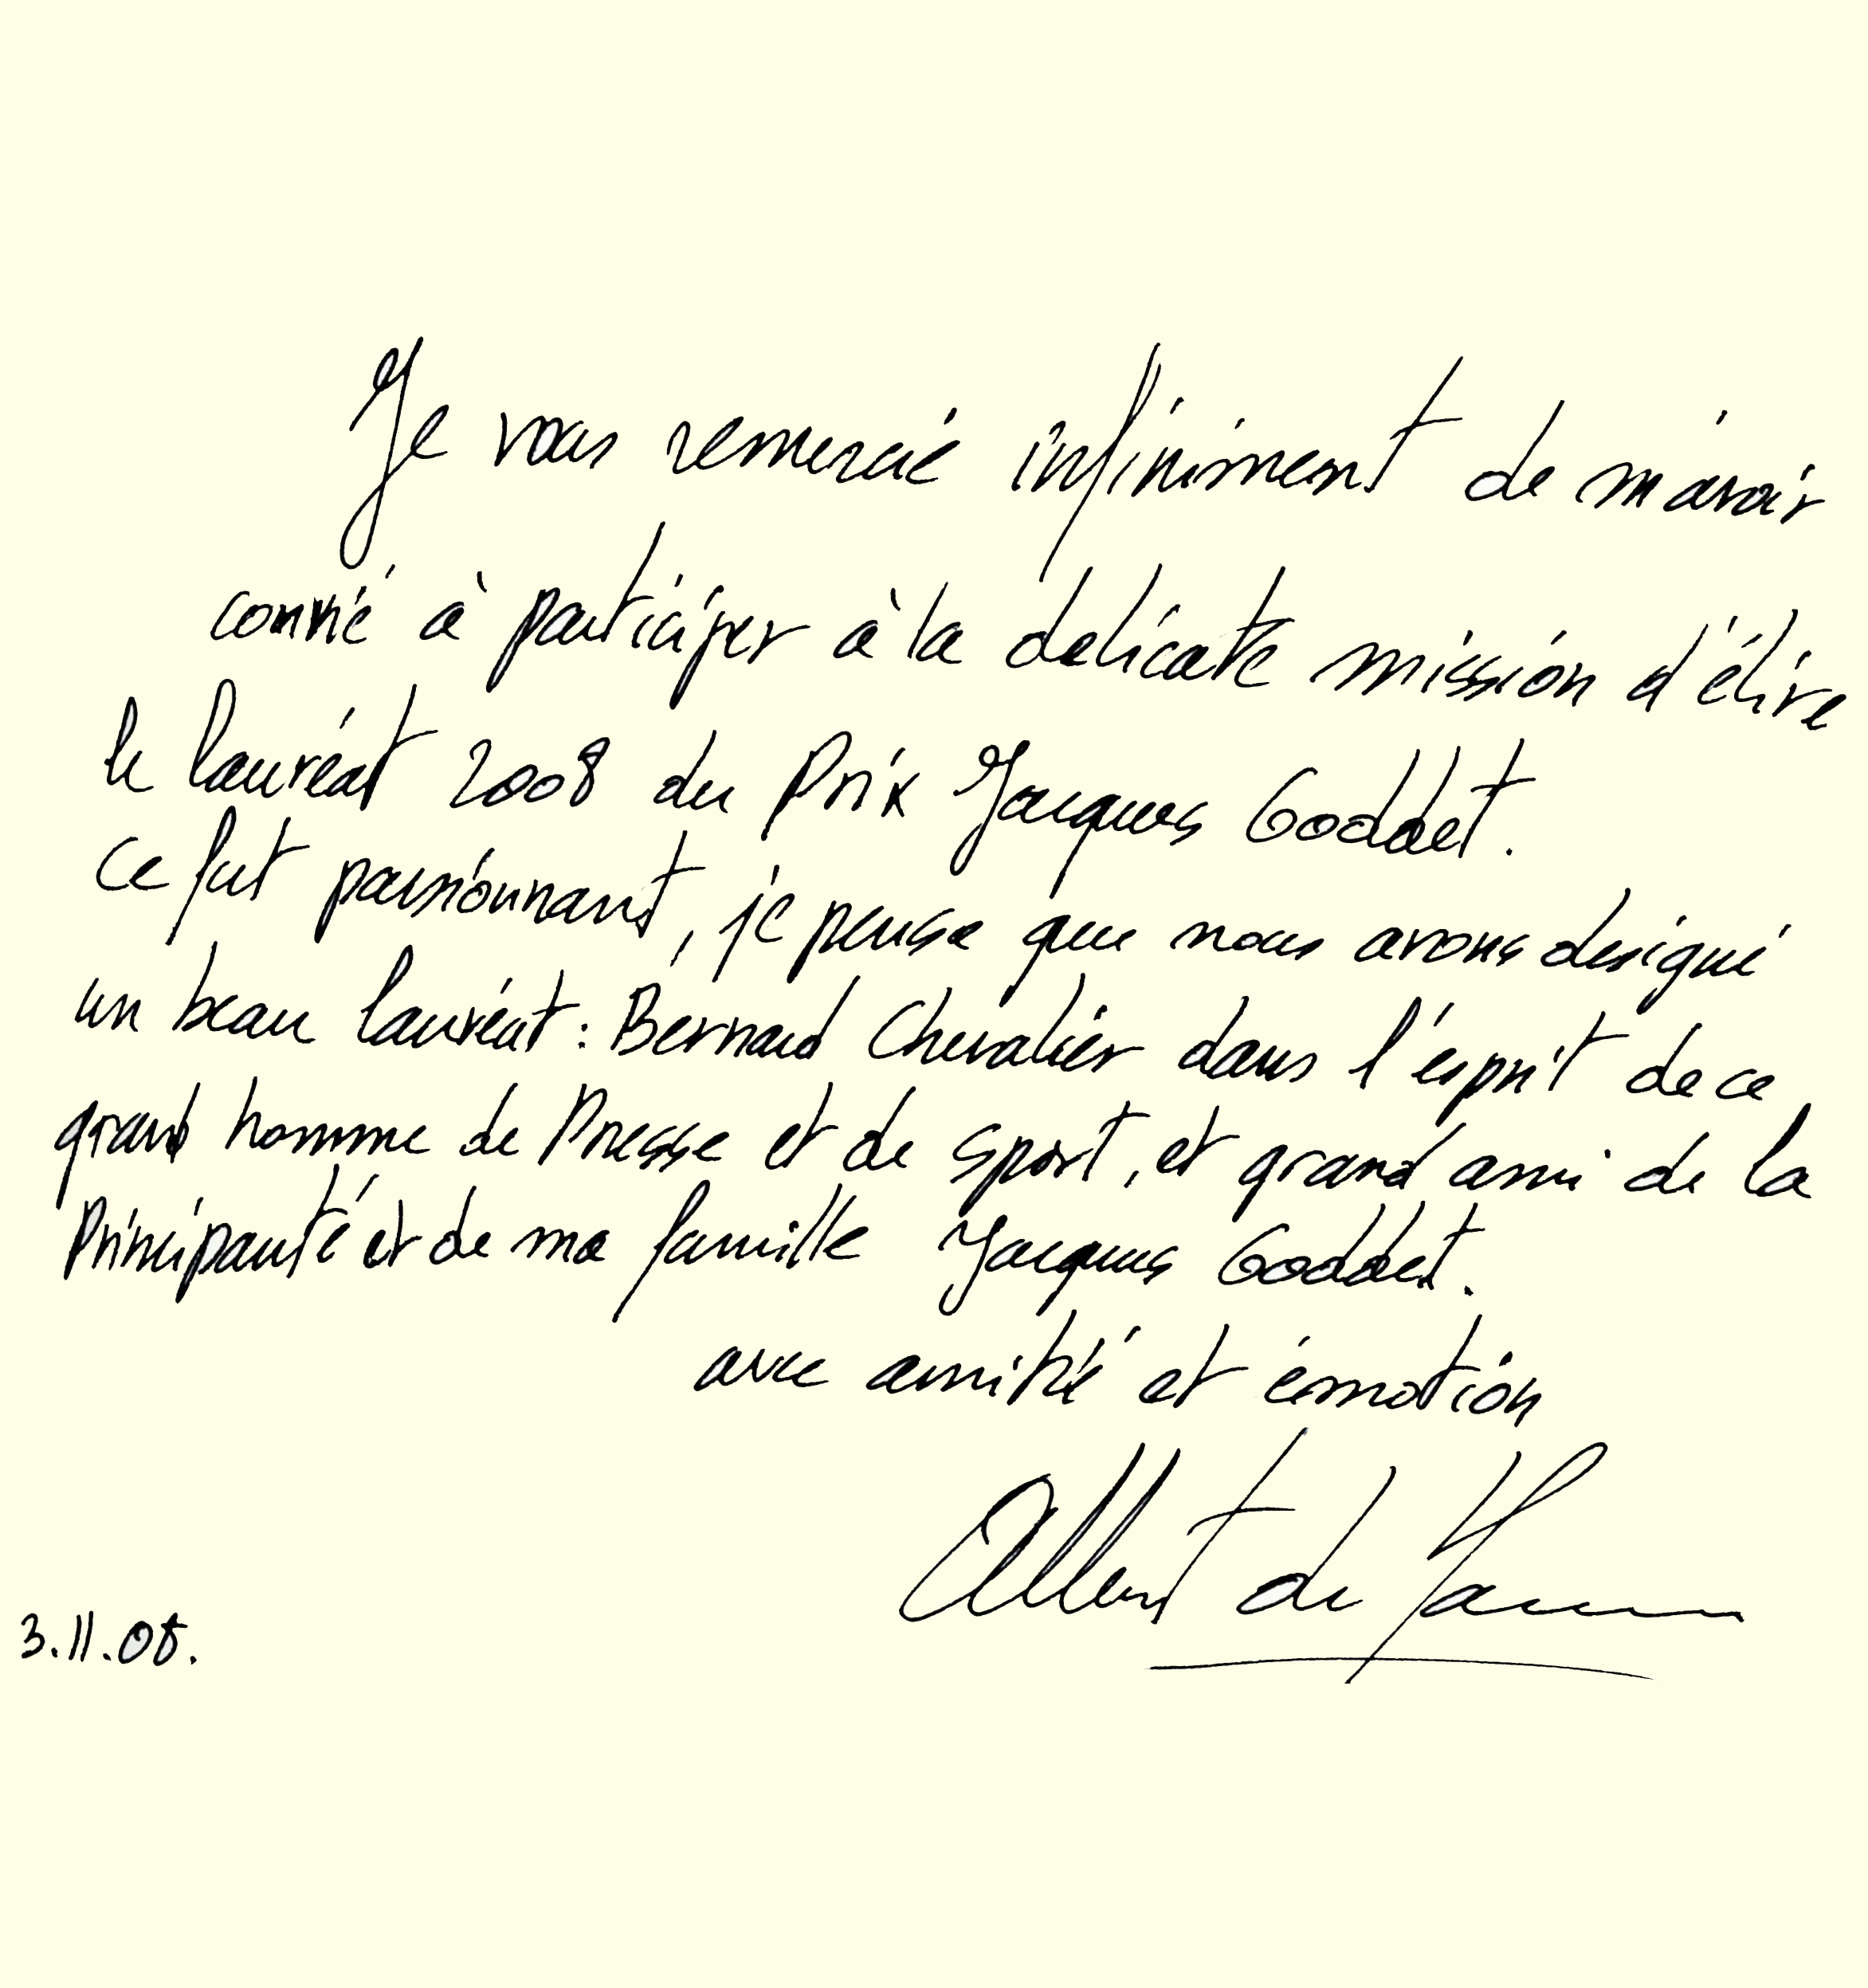 Je vous remercie infiniment de m'avoir
convié à participer à la délicate mission d'élire
le lauréat 2008 du Prix Jacques Goddet.
Ce fut passionnant, je pense que nous avons désigné
un beau lauréat : Bernard Chevalier dans l'esprit de ce
grand homme de Presse et de sport, et grand ami de la
Principauté et de ma famille Jacques Goddet.
avec amitié et émotion
Albert de
3.11.08.